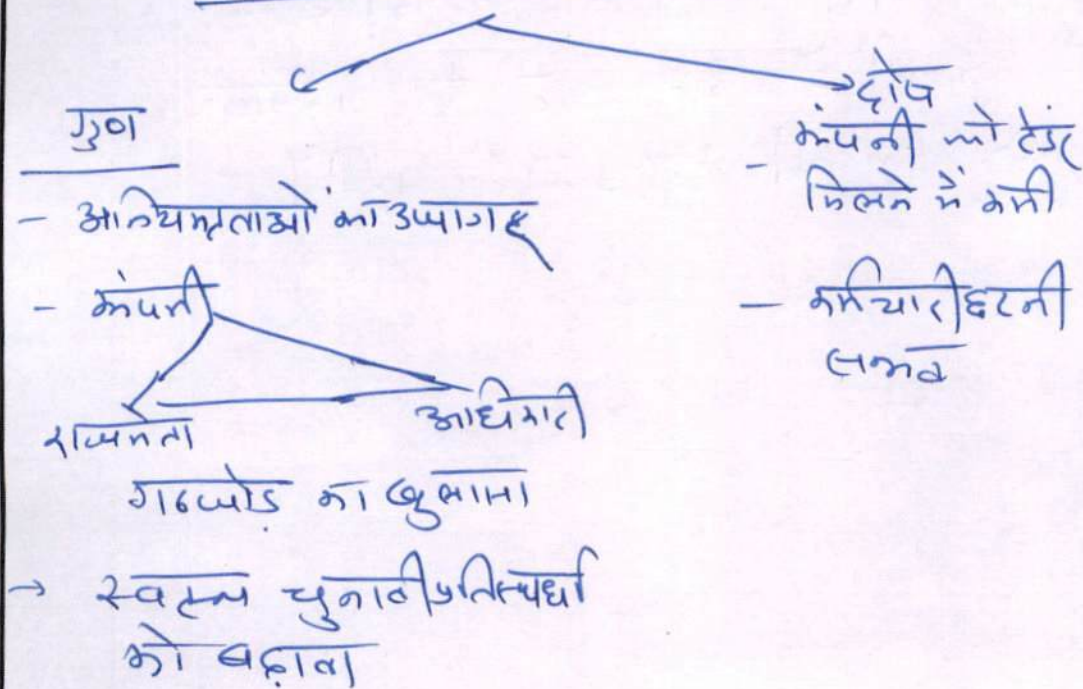 गुण
- अनियमितताओं का उजागर
- कंपनी
राजनेता
अधिकारी
गठजोड़ का खुलासा
→ स्वस्थ चुनावी प्रतिस्पर्धा
को बढ़ावा
दोष
- कंपनी को टेंडर
मिलने में कमी
- कर्मचारी छटनी
संभव